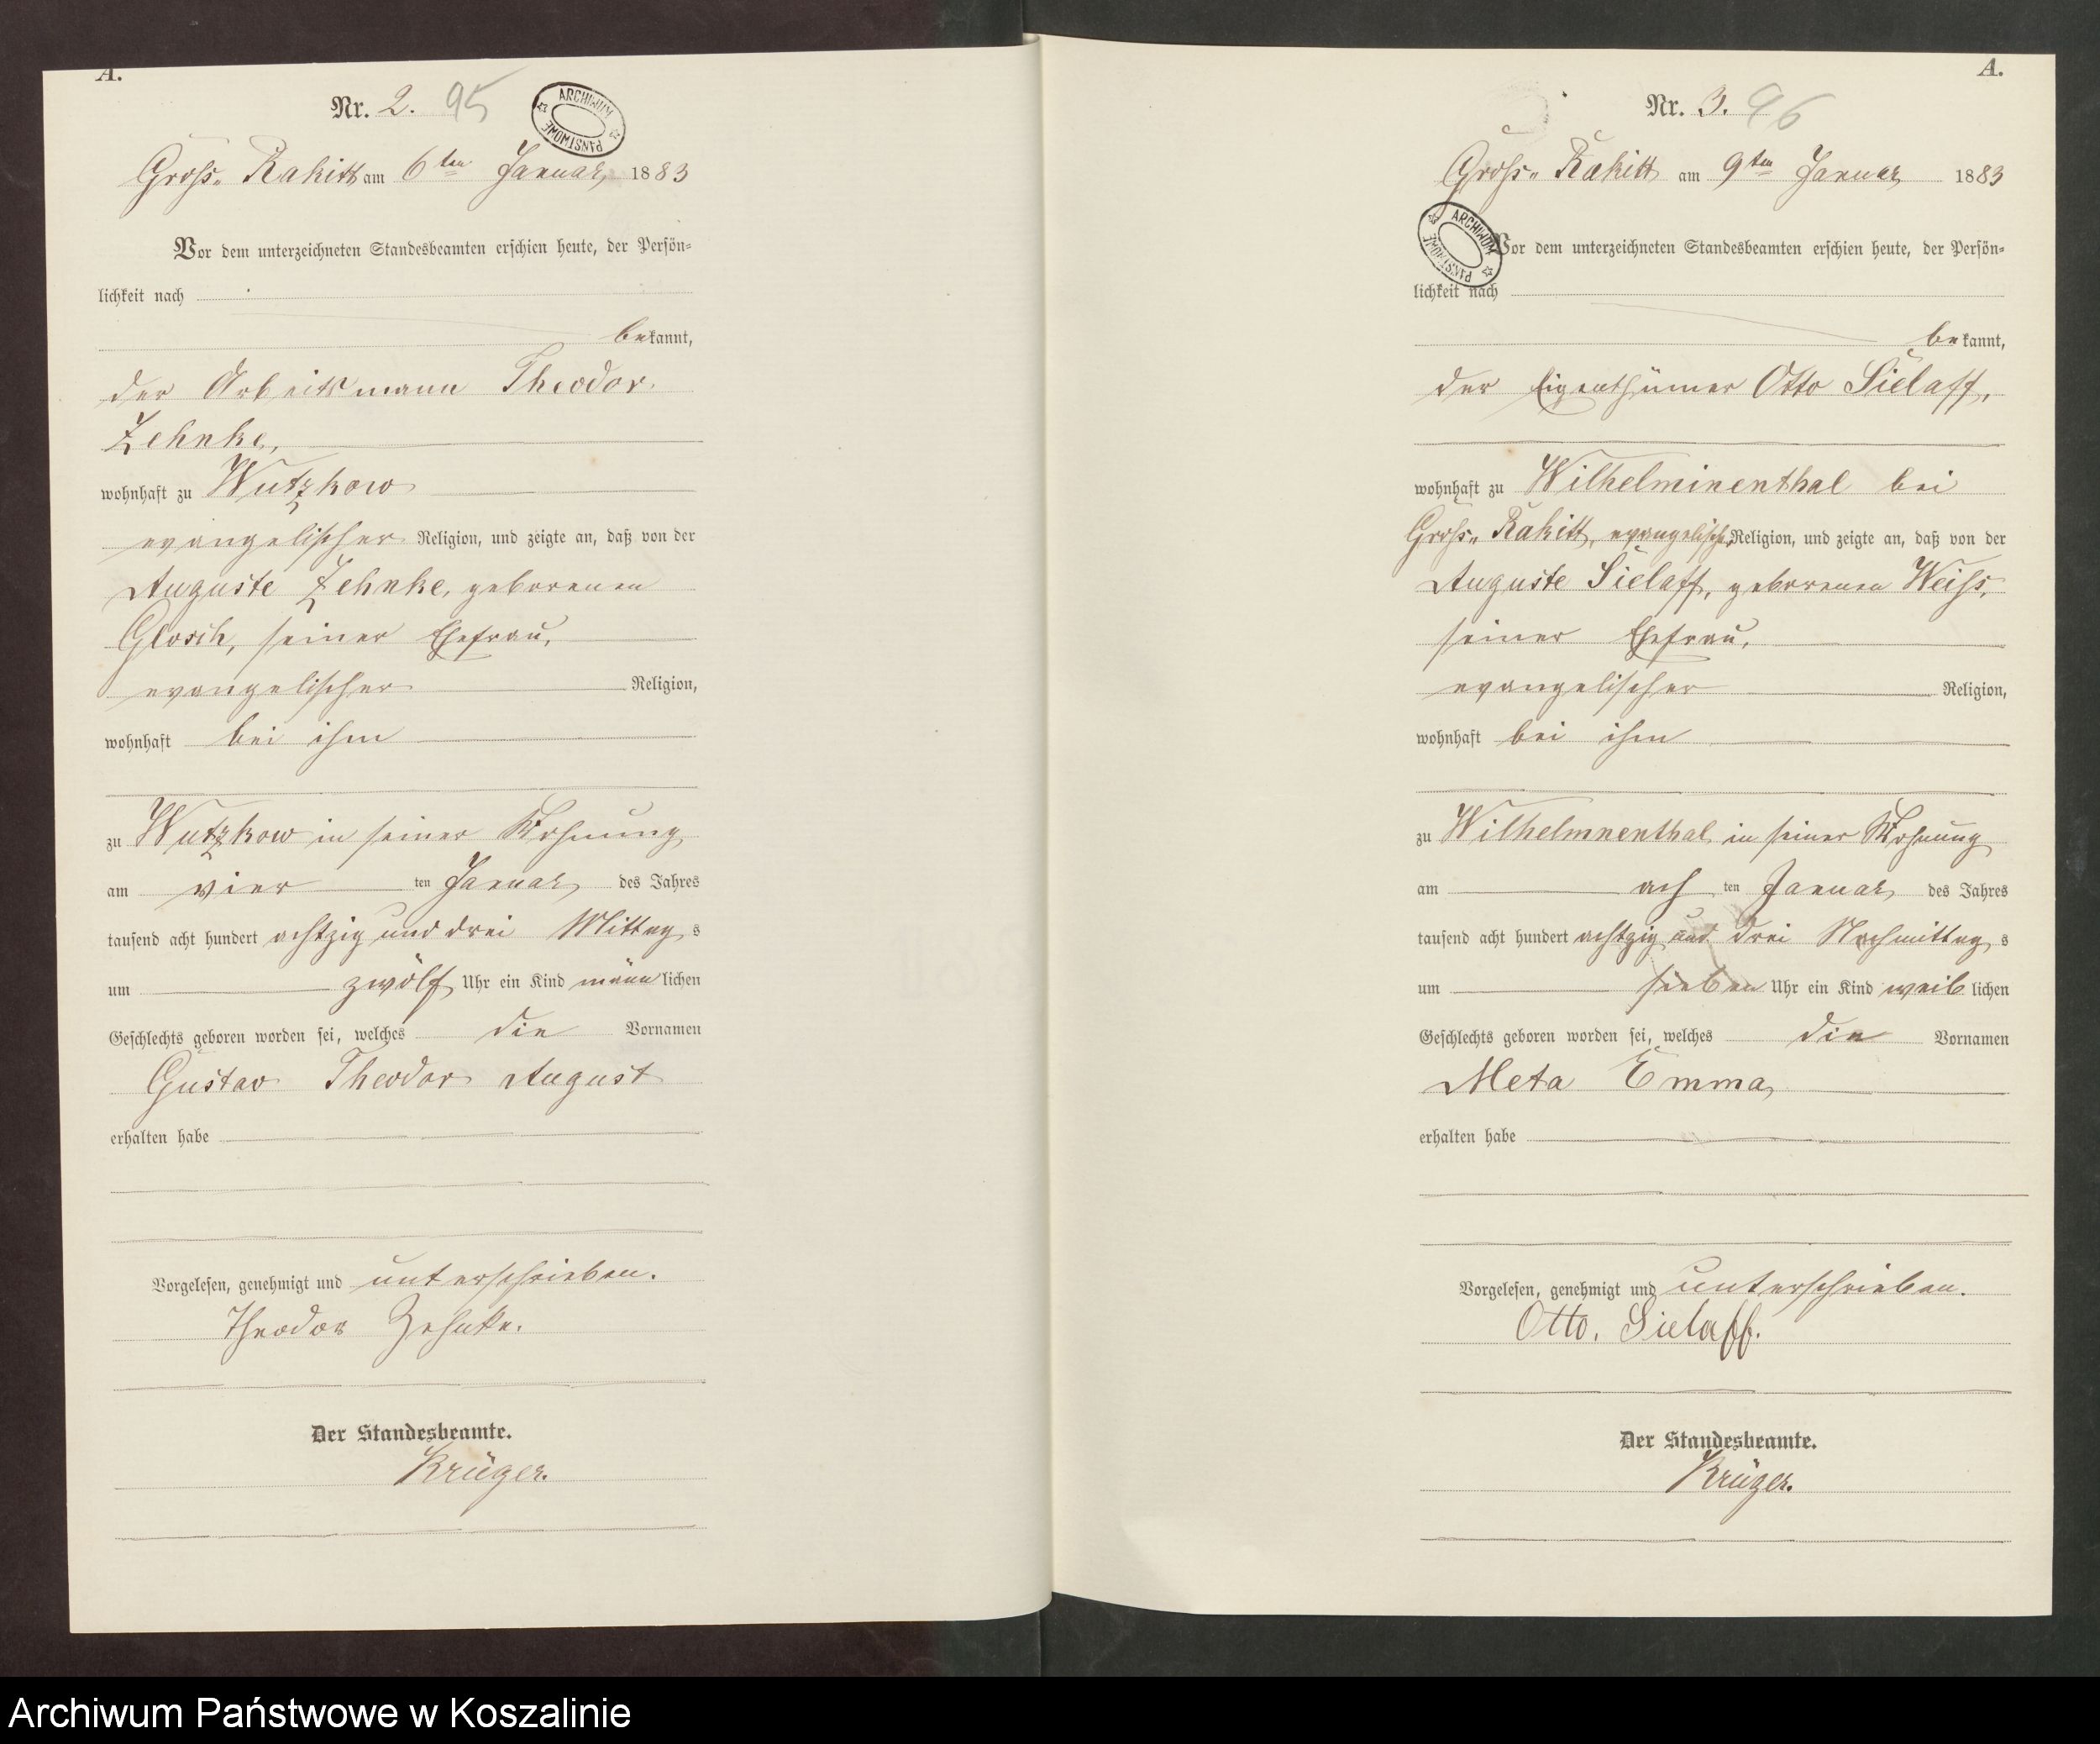 A.
Nr. 2. 95
ARCHIWUM PAŃSTWOWE
Gross„ Rakitt am 6ten Januar 1883
Vor dem unterzeichneten Standesbeamten erschien heute, der Persön=
lichkeit nach
bekannt,
der Arbeitsmann Theodor
Zehnke,
wohnhaft zu Wutzkow
evangelischer Religion, und zeigte an, daß von der
Auguste Zehnke, geborenen
Glosch, seiner Ehefrau,
evangelischer Religion,
wohnhaft bei ihm
zu Wutzkow in seiner Wohnung
am vier ten Januar des Jahres
tausend acht hundert achtzig und drei Mittag s
um zwölf Uhr ein Kind männlichen
Geschlechts geboren worden sei, welches die Vornamen
Gustav Theodor August
erhalten habe
Vorgelesen, genehmigt und unterschrieben.
Theodor Zehnke.
Der Standesbeamte.
Krüger.
A.
Nr. 3. 96
Gross„ Rakitt am 9ten Januar 1883
ARCHIWUM PAŃSTWOWE
Vor dem unterzeichneten Standesbeamten erschien heute, der Persön=
lichkeit nach
bekannt,
der Eigenthümer Otto Sielaff,
wohnhaft zu Wilhelminenthal bei
Gross„ Rakitt, evangelischer Religion, und zeigte an, daß von der
Auguste Sielaff, geborenen Weiss,
seiner Ehefrau,
evangelischer Religion,
wohnhaft bei ihm
zu Wilhelmnenthal in seiner Wohnung
am ach ten Januar des Jahres
tausend acht hundert achtzig und drei Nachmittag s
um sieben Uhr ein Kind weiblichen
Geschlechts geboren worden sei, welches die Vornamen
Meta Emma
erhalten habe
Vorgelesen, genehmigt und unterschrieben.
Otto. Sielaff.
Der Standesbeamte.
Krüger.
Archiwum Państwowe w Koszalinie